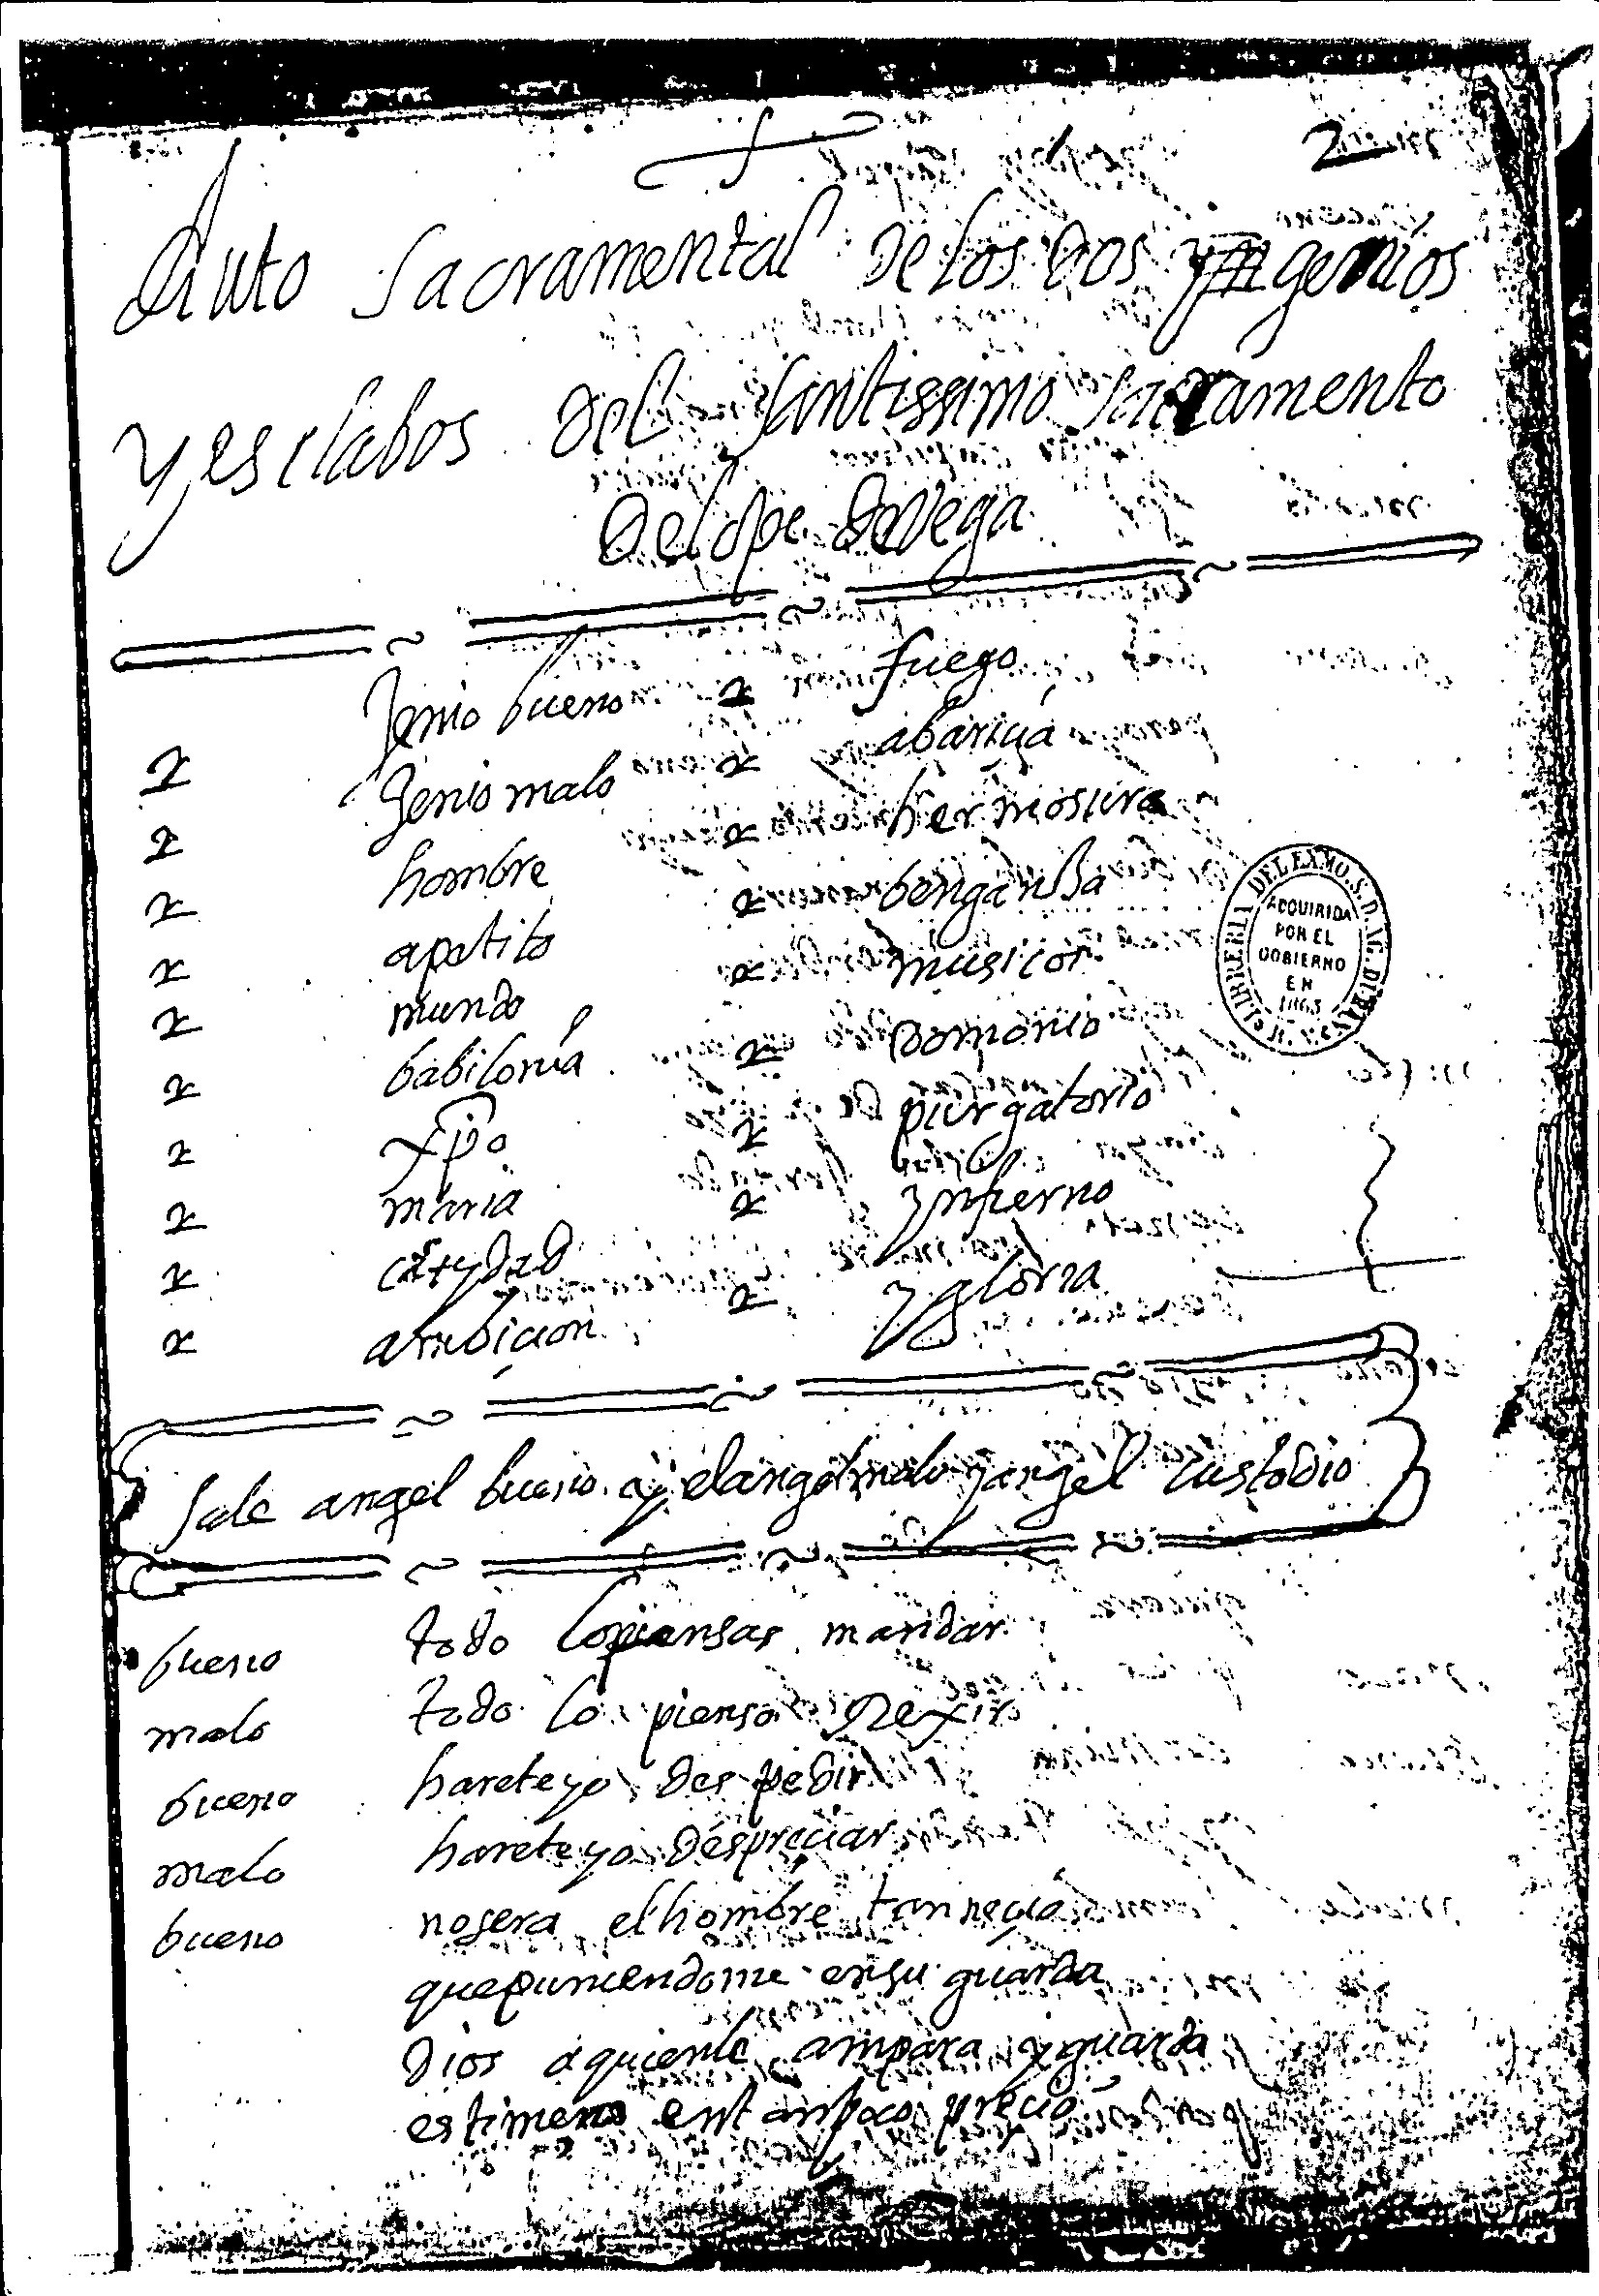 2
Auto sacramental de los dos yngenios
y esclabos del santissimo sacramento
de lope de vega
Jenio bueno
Jenio malo
hombre
apetito
mundo
babilonia
xpo
maria
carydad
ambicion
fuego
abariçia
hermosura
benganssa
musicos
Domonio
purgatorio
ynfierno
y gloria
LIBRERIA DEL EXMO. S. D. AG. DURAN
ADQUIRIDA
POR EL
GOBIERNO
EN
1863
sale angel bueno y el angel malo y angel custodio
bueno todo lo piensas mandar
malo todo lo pienso rexir
bueno harete yo despedir
malo harete yo despreciar
bueno no sera el hombre tan neçio
que puniendome en su guarda
Dios a quien le ampara y guarda
estimena en tan poco preçio